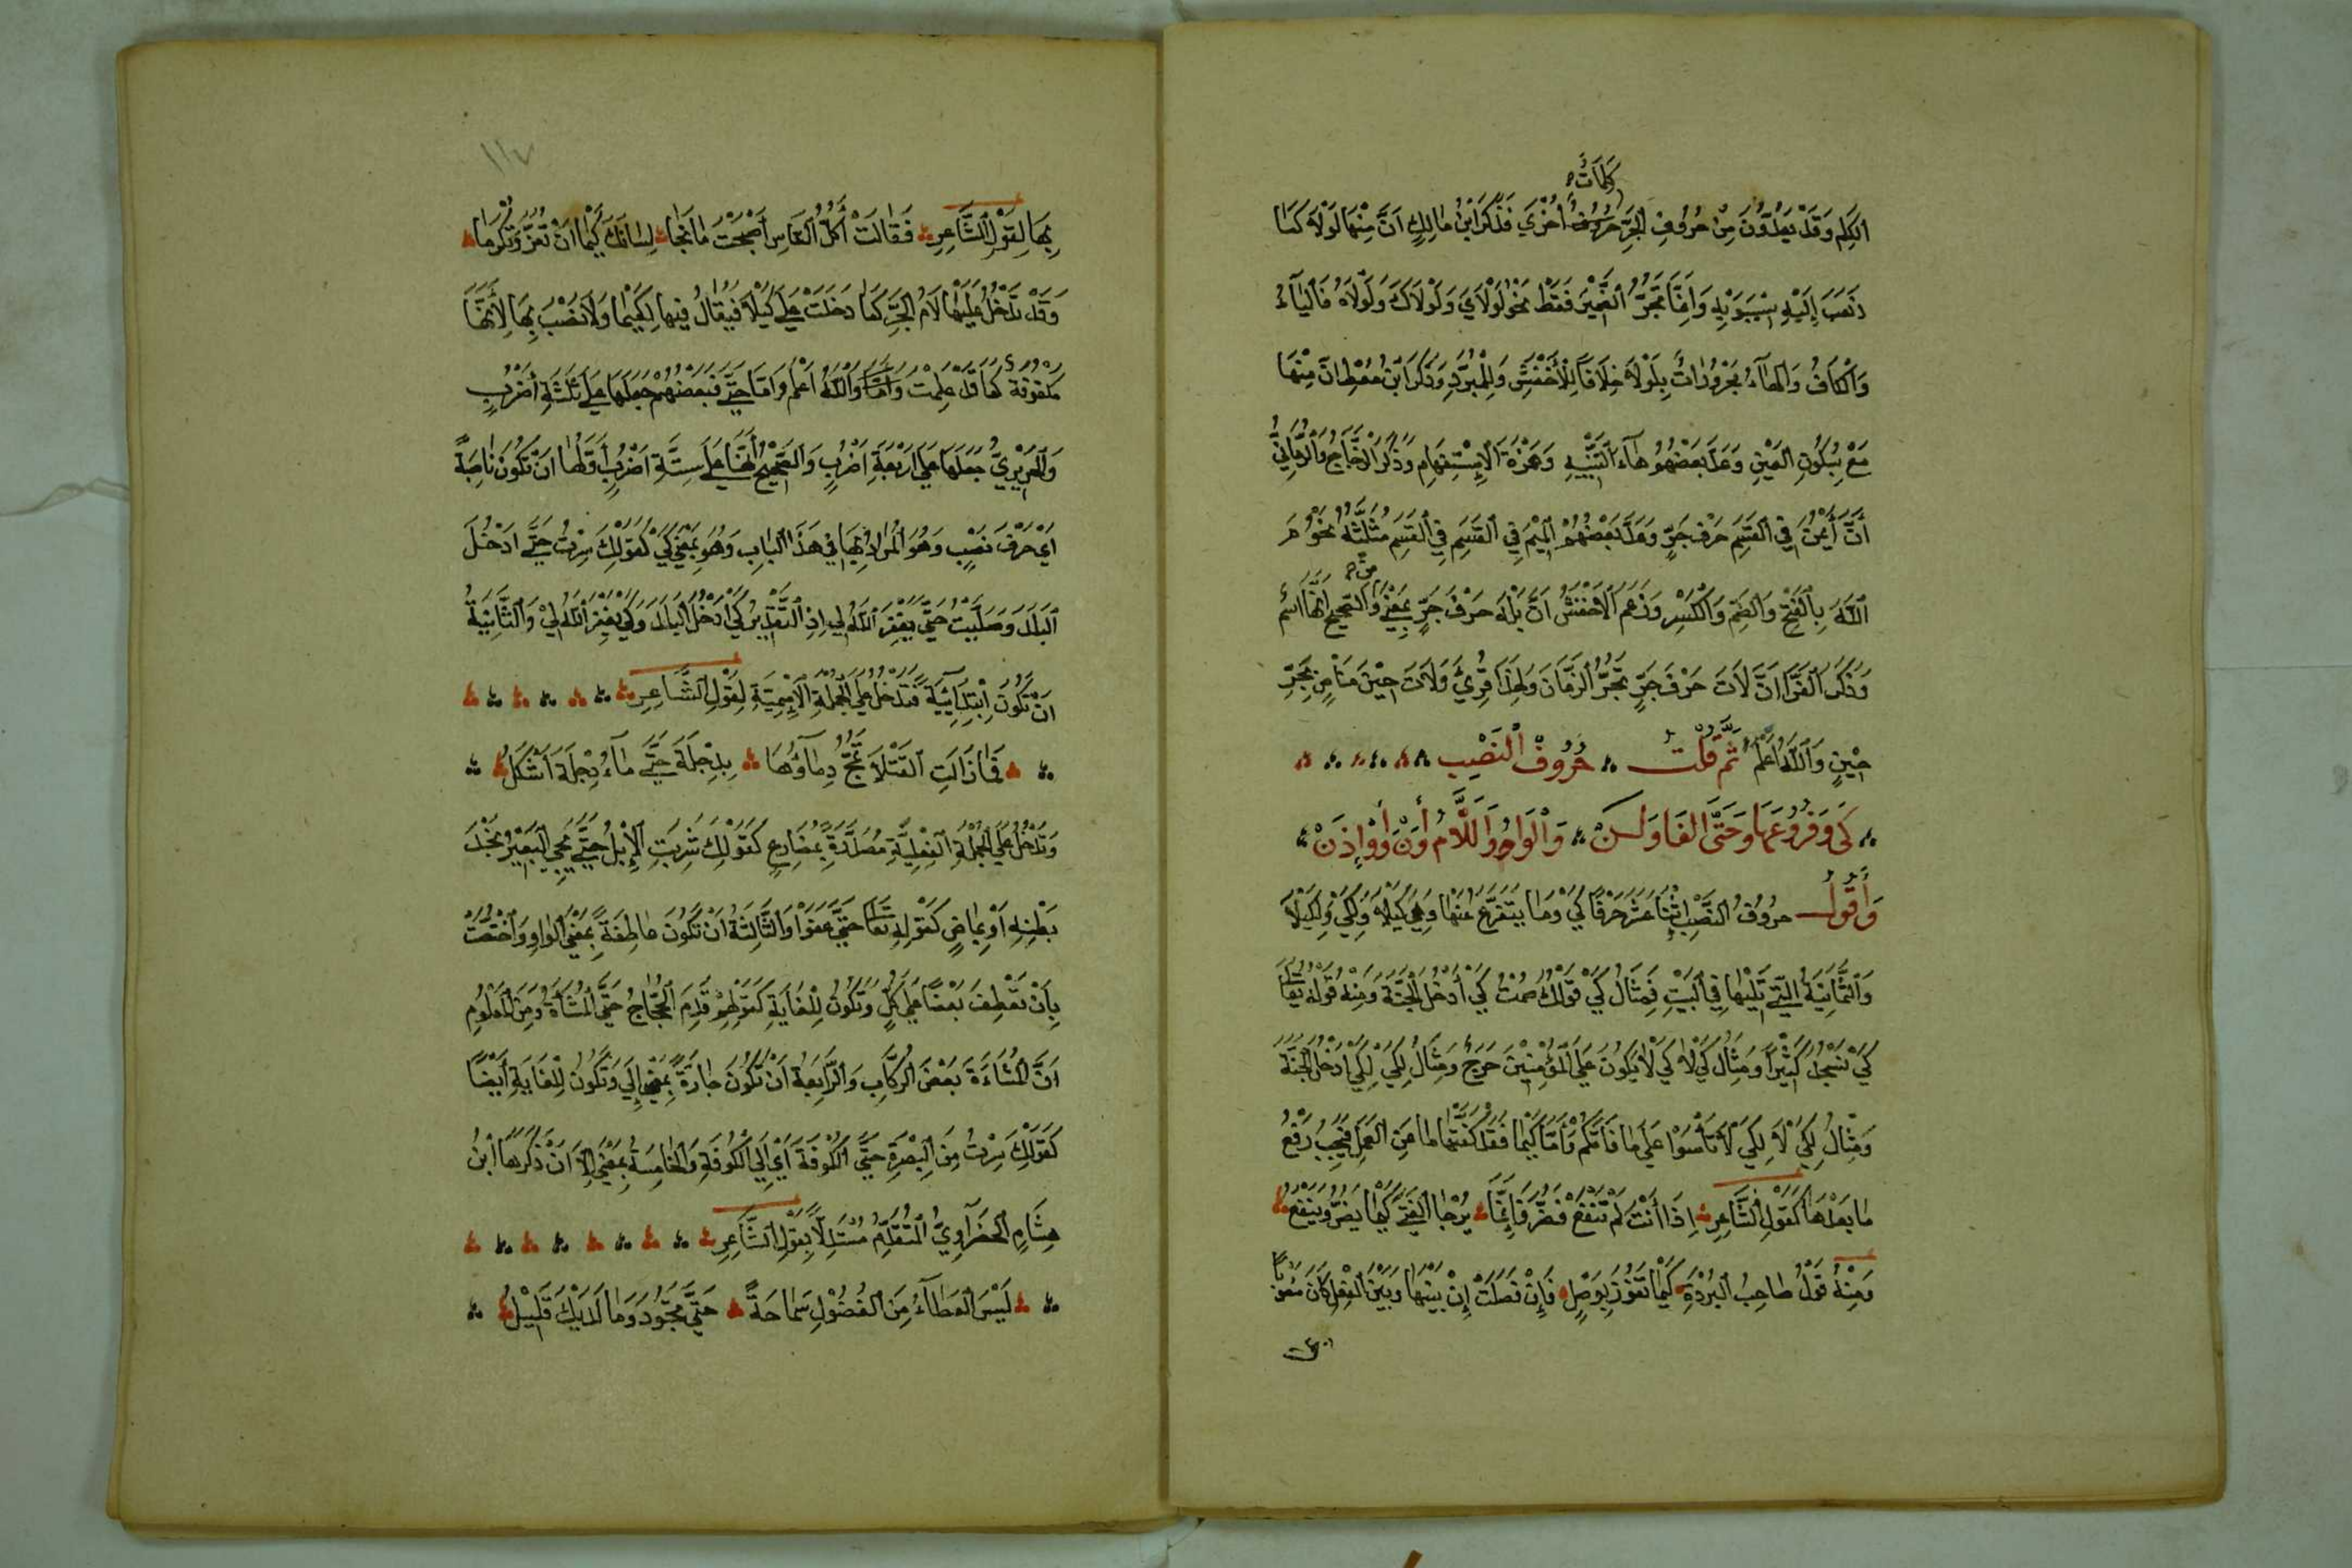 كَلِمَاتٌ
الكَلِم وَقَدْ يَعُدُّونَ مِنْ حُرُوفِ الجَرِّ حُرُوفٌ أُخْرَي فَذَكَرَ ابْنُ مَالِكٍ اَنَّ مِنْهَا لَوْلَا كَمَا
ذَهَبَ إِلَيْهِ سِيْبَوَيْهِ وَاِنَّمَا تَجُرُّ الضَّمِيْرَ فَقَطْ نَحْوُ لَوْلَايَ وَلَوْلَاكَ وَلَوْلَاهُ فَاليَاءُ
وَالْكَافُ وَالهَاءُ مَجْرُورَاتٌ بِلَوْلَا خِلَافًا لِلْأَخْفَشِ وَلِلْمُبَرِّدِ وَذَكَرَ ابْنُ مُعْطٍ اَنَّ مِنْهَا
مَعْ بِسُكُونِ العَيْنِ وَعَدَّ بَعْضُهُمْ هَاءَ التَّنْبِيْهِ وَهَمْزَةَ الاِسْتِفْهَامِ وَذَكَرَ الزَّجَّاجُ وَالرُّمَّانِيُّ
أَنَّ أَيْمُنَ فِي القَسَمِ حَرْفَ جَرٍّ وَعَدَّ بَعْضُهُمْ المِيْمَ فِي القَسَمِ فِي القَسَمِ مُثَلَّثَةً نَحْوُ مَ
اللهَ بِالفَتْحِ وَالضَمِّ وَالْكَسْرِ وَزَعَمَ الاَخْفَشُ اَنَّ بَلْهَ حَرْفَ جَرٍّ بِمَعْنَي مِنْ وَالصَّحِيحُ اَنَّهَا اسْمٌ
وَذَكَرَ الفَرَّا اَنَّ لَاتَ حَرْفَ جَرٍّ تَجُرُّ الزَّمَانَ وَلِهَذَا قُرِئَ وَلَاتَ حِيْنِ مَنَاصٍ بِجَرِّ
حِيْنٍ وَاللهُ اَعْلَمُ ثُمَّ قُلْتُ حُرُوفُ النَّصْبِ
كَي وَفُرُوعَهَا وَحَتَّى الفَا وَلَنْ وَالْوَاوُ وَاللَّامُ أَوْ أَنْ وَإِذَنْ
وَأَقُولُ حُرُوفُ النَّصْبِ اِثْنَا عَشَرَ حَرْفًا كَي وَمَا يَتَفَرَّعُ عَنْهَا وَهِيَ كَيْلَا وَلِكَيْ وَلِكَيْلَا
وَالثَّمَانِيَةُ الَّتِي تَلِيْهَا فِي البَيْتِ فَمِثَالُ كَيْ قَوْلُكَ صُمْتُ كَيْ أَدْخُلَ الْجَنَّةَ وَمِنْهُ قَوْلُهُ تَعَالَي
كَيْ نُسَبِّحَكَ كَثِيْرًا وَمِثَالُ كَيْلَا كَيْ لَا يَكُونَ عَلَي المُؤْمِنِيْنَ حَرَجٌ وَمِثَالُ لِكَيْ لِكَيْ اَدْخُلَ الجَنَّةَ
وَمِثَالُ لِكَيْ لَا لِكَيْ لَا تَأْسَوْا عَلَي مَا فَاتَكُمْ وَأَمَّا كَيْمَا فَقَدْ كَفَّتْهَا مَا مِنَ العَمَلِ فَيَجِبُ رَفْعُ
مَا بَعْدَهَا كَقَوْلِ الشَّاعِرِ اِذَا أَنْتَ لَمْ تَنْفَعْ فَضُرَّ فَإِنَّمَا يُرْجَا الفَتَي كَيْمَا يَضُرُّ وَيَنْفَعُ
وَمِنْهُ قَوْلُ صَاحِبُ البُرْدَةِ كَيْمَا تَفُوزَ بِوَصْلٍ فَإِنْ فَصَلَتْ إِنْ بَيْنَهَا وَبَيْنَ الفِعْلِ كَانَ
١١٧
بِهَا لِقَوْلِ الشَّاعِرِ فَقَالَتْ أَكُلَّ النَّاسِ أَصْبَحْتَ مَانِحًا لِسَانَكَ كَيْمَا اَنْ تَغُرَّ وَتَكْرِمَا
وَقَدْ تَدْخُلُ عَلَيْهَا لَامُ الجَرِّ كَمَا دَخَلَتْ عَلَي كَيْلَا فَيُقَالُ فِيهَا لِكَيْمَا وَلَا نَصْبَ بِهَا لِأَنَّهَا
مَكْفُوفَةٌ كَمَا قَدْ عَلِمْتَ وَاللهُ اَعْلَم وَامَّا حَتَّي فَبَعْضُهُمْ جَعَلَهَا عَلَي ثَلَثَةِ أَضْرُبٍ
وَالحَرِيْرِيُّ جَعَلَهَا عَلَي اَرْبَعَةِ اَضْرُبٍ وَالصَّحِيْحُ أَنَّهَا عَلَي سِتَّةِ اَضْرُبٍ أَوَّلُهَا اَنْ تَكُونَ نَاصِبَةً
اَيْ حَرْفَ نَصْبٍ وَهُوَ المُرَادُ بِهَا فِي هَذَا البَابِ وَهُوَ بِمَعْنَي كَيْ كَقَوْلِكَ سِرْتُ حَتَّي اَدْخُلَ
البَلَدَ وَصَلَّيْتُ حَتَّي يَغْفِرَ اللهُ لِي اِذِ التَّقْدِيْرُ كَيْ اَدْخُلَ البَلَدَ وَكَيْ يَغْفِرَ اللهُ لِيْ وَالثَّانِيَةُ
اَنْ تَكُونَ اِبْتِدَائِيَّةً فَتَدْخُلُ عَلَي الجُمْلَةِ الاِسْمِيَّةِ لِقَوْلِ الشَّاعِرِ
فَمَا زَالَتِ القَتْلَا تَمُجُّ دِمَاؤُهَا بِدِجْلَةَ حَتَّي مَاءُ دِجْلَةَ اَشْكَلُ
وَتَدْخُلُ عَلَي الجُمْلَةِ الفِعْلِيَّةِ مُصَدَّرَةً بِمُضَارِعٍ كَقَوْلِكَ شَرِبَتِ الإِبْلُ حَتَّي يَجِيُ البَعِيْرُ يَجُرُّ
بَطْنِهِ اَوْ بِمَاضٍ كَقَوْلِهِ تَعَا حَتَّي عَفَوْا وَالثَّالِثَةُ اَنْ تَكُونَ عَاطِفَةً بِمَعْنَي الوَاوِ وَاخْتُصَّتْ
بِأَنْ تَعْطِفَ بَعْضًا عَلَي كُلٍّ وَتَكُونُ لِلْغَايَةِ كَقَوْلِهِمْ قَدِمَ الحُجَّاجُ حَتَّي المُشَاةُ وَمِنَ المَعْلُومِ
اَنَّ المُشَاءَةَ بَعْضَ الرُكَّابِ وَالرَّابِعَةُ اَنْ تَكُونَ جَارَةً بِمَعْنَي إِلَي وَتَكُونُ لِلْغَايَةِ أَيْضًا
كَقَوْلِكَ سِرْتُ مِنَ البَصْرَةِ حَتَّي الكُوفَةِ اَيْ إِلَي الكُوفَةِ وَالخَامِسَةُ بِمَعْنَي إِلَّا اَنْ ذَكَرَهَا ابْنُ
هِشَامِ الخَضْرَاوِيُّ المُتَقَدِّمُ مُسْتَدِلًّا بِقَوْلِ الشَّاعِرِ
لَيْسَ العَطَاءُ مِنَ الفُضُوْلِ سَمَاحَةً حَتَّي تَجُودَ وَمَا لَدَيْكَ قَلِيْلُ